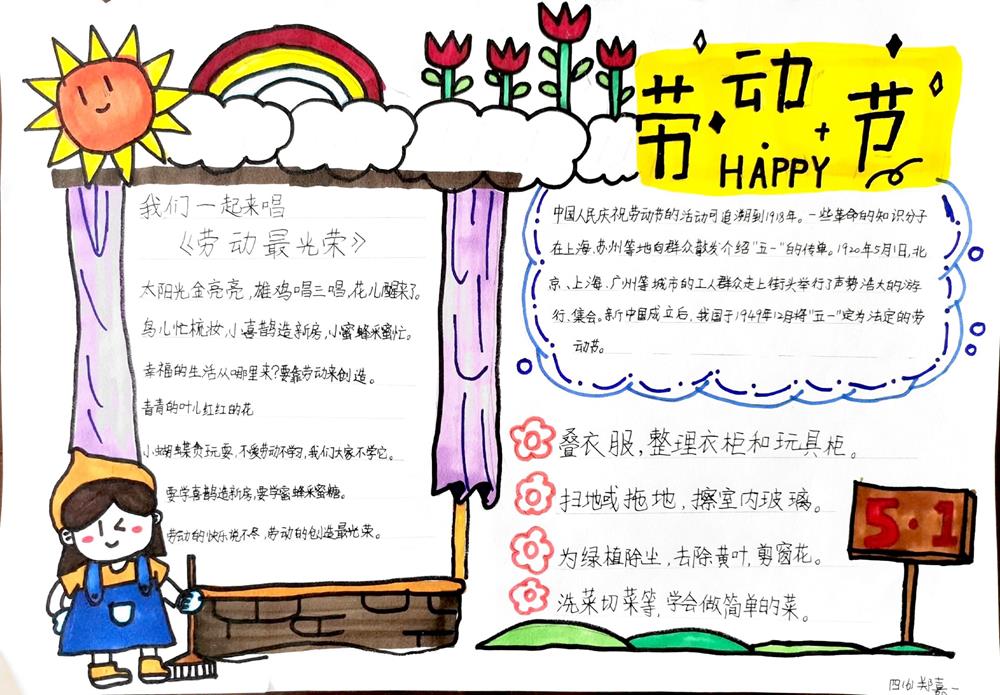 劳动节
HAPPY
我们一起来唱
《劳动最光荣》
太阳光金亮亮,雄鸡唱三唱,花儿醒来了。
鸟儿忙梳妆,小喜鹊造新房,小蜜蜂采蜜忙。
幸福的生活从哪里来?要靠劳动来创造。
青青的叶儿红红的花
小蝴蝶贪玩耍,不爱劳动不学习,我们大家不学它。
要学喜鹊造新房,要学蜜蜂采蜜糖。
劳动的快乐说不尽,劳动的创造最光荣。
中国人民庆祝劳动节的活动可追溯到1918年。一些革命的知识分子
在上海、苏州等地向群众散发介绍"五一"的传单。1920年5月1日,北
京、上海、广州等城市的工人群众走上街头举行了声势浩大的游
行、集会。新中国成立后,我国于1949年12月将"五一"定为法定的劳
动节。
叠衣服,整理衣柜和玩具柜。
扫地或拖地,擦室内玻璃。
为绿植除尘,去除黄叶,剪窗花。
洗菜切菜等,学会做简单的菜。
5·1
郑嘉一